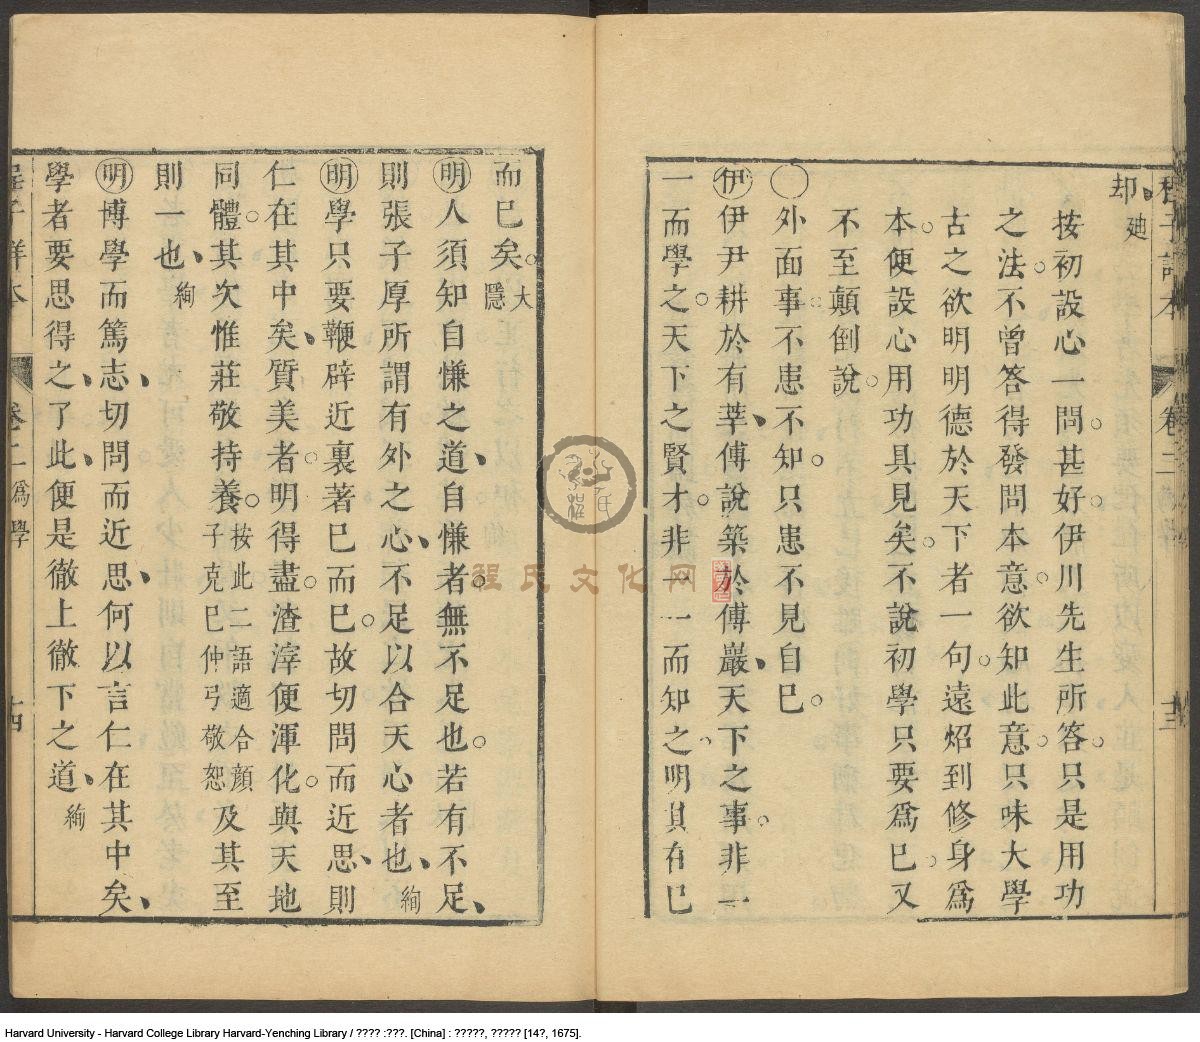 程子詳本 卷二 十三
却 廸
按初設心一問甚好伊川先生所答只是用功
之法不曾答得發問本意欲知此意只味大學
古之欲明明德於天下者一句遠炤到修身爲
本便設心用功具見矣不說初學只要爲己又
不至顛倒說
外面事不患不知只患不見自己
伊 伊尹耕於有莘傅說築於傅巖天下之事非一
一而學之天下之賢才非一一而知之明其在己
而已矣 大隱
明 人須知自慊之道自慊者無不足也若有不足
則張子厚所謂有外之心不足以合天心者也 絢
明 學只要鞭辟近裏著已而已故切問而近思則
仁在其中矣質美者明得盡渣滓便渾化與天地
同體其次惟莊敬持養 按此二語適合顏子克巳仲弓敬恕 及其至
則一也 絢
明 博學而篤志切問而近思何以言仁在其中矣
學者要思得之了此便是徹上徹下之道 絢
程子詳本 卷二 爲學 十四
程氏文化网
Harvard University - Harvard College Library Harvard-Yenching Library / ???? :???. [China] : ?????, ????? [14?, 1675].